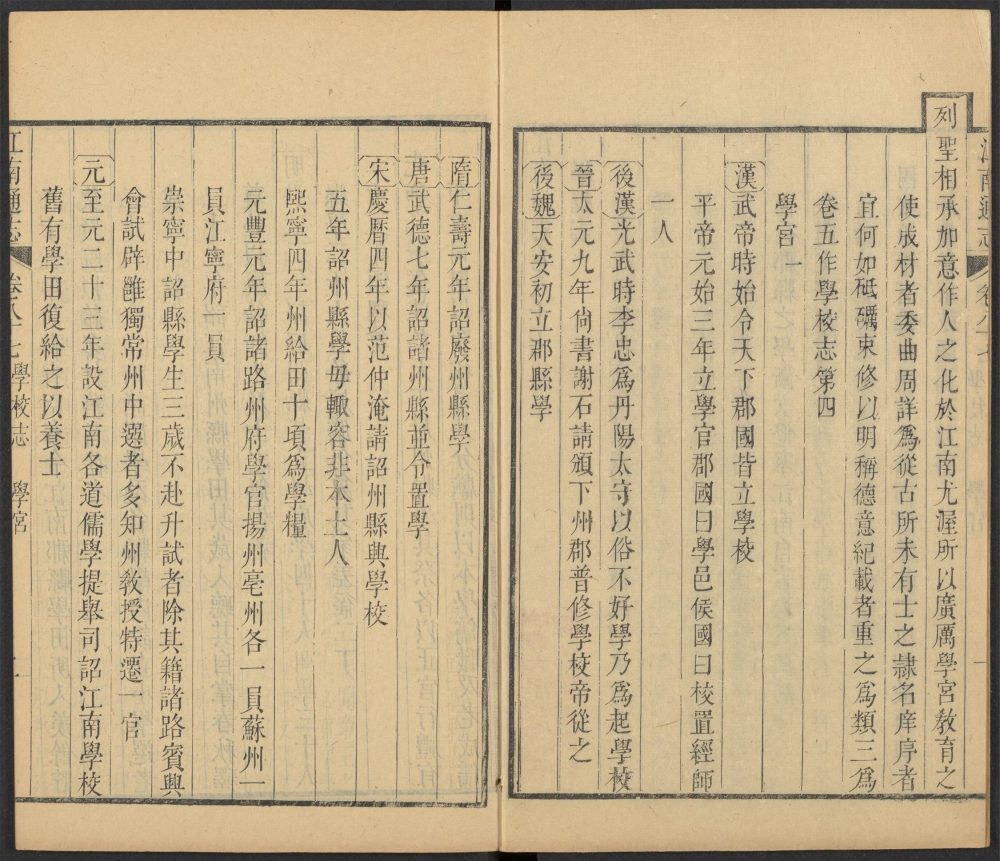 列聖相承加意作人之化於江南尤渥所以廣厲學宮教育之
使成材者委曲周詳為從古所未有士之隷名庠序者
宜何如砥礪束修以明稱德意紀載者重之為類三為
卷五作學校志第四
學宮一
漢武帝時始令天下郡國皆立學校
平帝元始三年立學官郡國曰學邑侯國曰校置經師
一人
後漢光武時李忠為丹陽太守以俗不好學乃為起學校
晉太元九年尚書謝石請頒下州郡普修學校帝從之
後魏天安初立郡縣學
隋仁壽元年詔廢州縣學
唐武德七年詔諸州縣並令置學
宋慶曆四年以范仲淹請詔州縣興學校
五年詔州縣學毋輒容非本土人
熙寧四年州給田十頃為學糧
元豐元年詔諸路州府學官揚州亳州各一員蘇州一
員江寧府一員
崇寧中詔縣學生三歲不赴升試者除其籍諸路賓興
會試辟雝獨常州中選者多知州教授特遷一官
元至元二十三年設江南各道儒學提舉司詔江南學校
舊有學田復給之以養士
江南通志 卷八十七 學校志 學宮